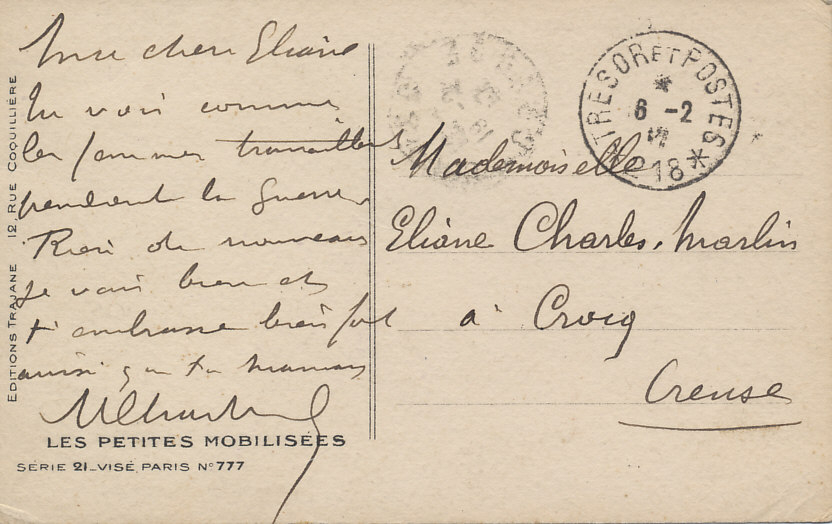 Ma chère Eliane
Tu vois comme
les femmes travaillent
pendant la guerre
Rien de nouveau
je vais bien et
t'embrasse bien fort
ainsi que ta maman
LES PETITES MOBILISÉES
SÉRIE 21_VISÉ PARIS N° 777
EDITIONS TRAJANE 12 RUE COQUILLIÈRE
TRESOR ET POSTES
*
6 -2
18 *
Mademoiselle
Eliane Charles-Marlin
à Crocq
Creuse